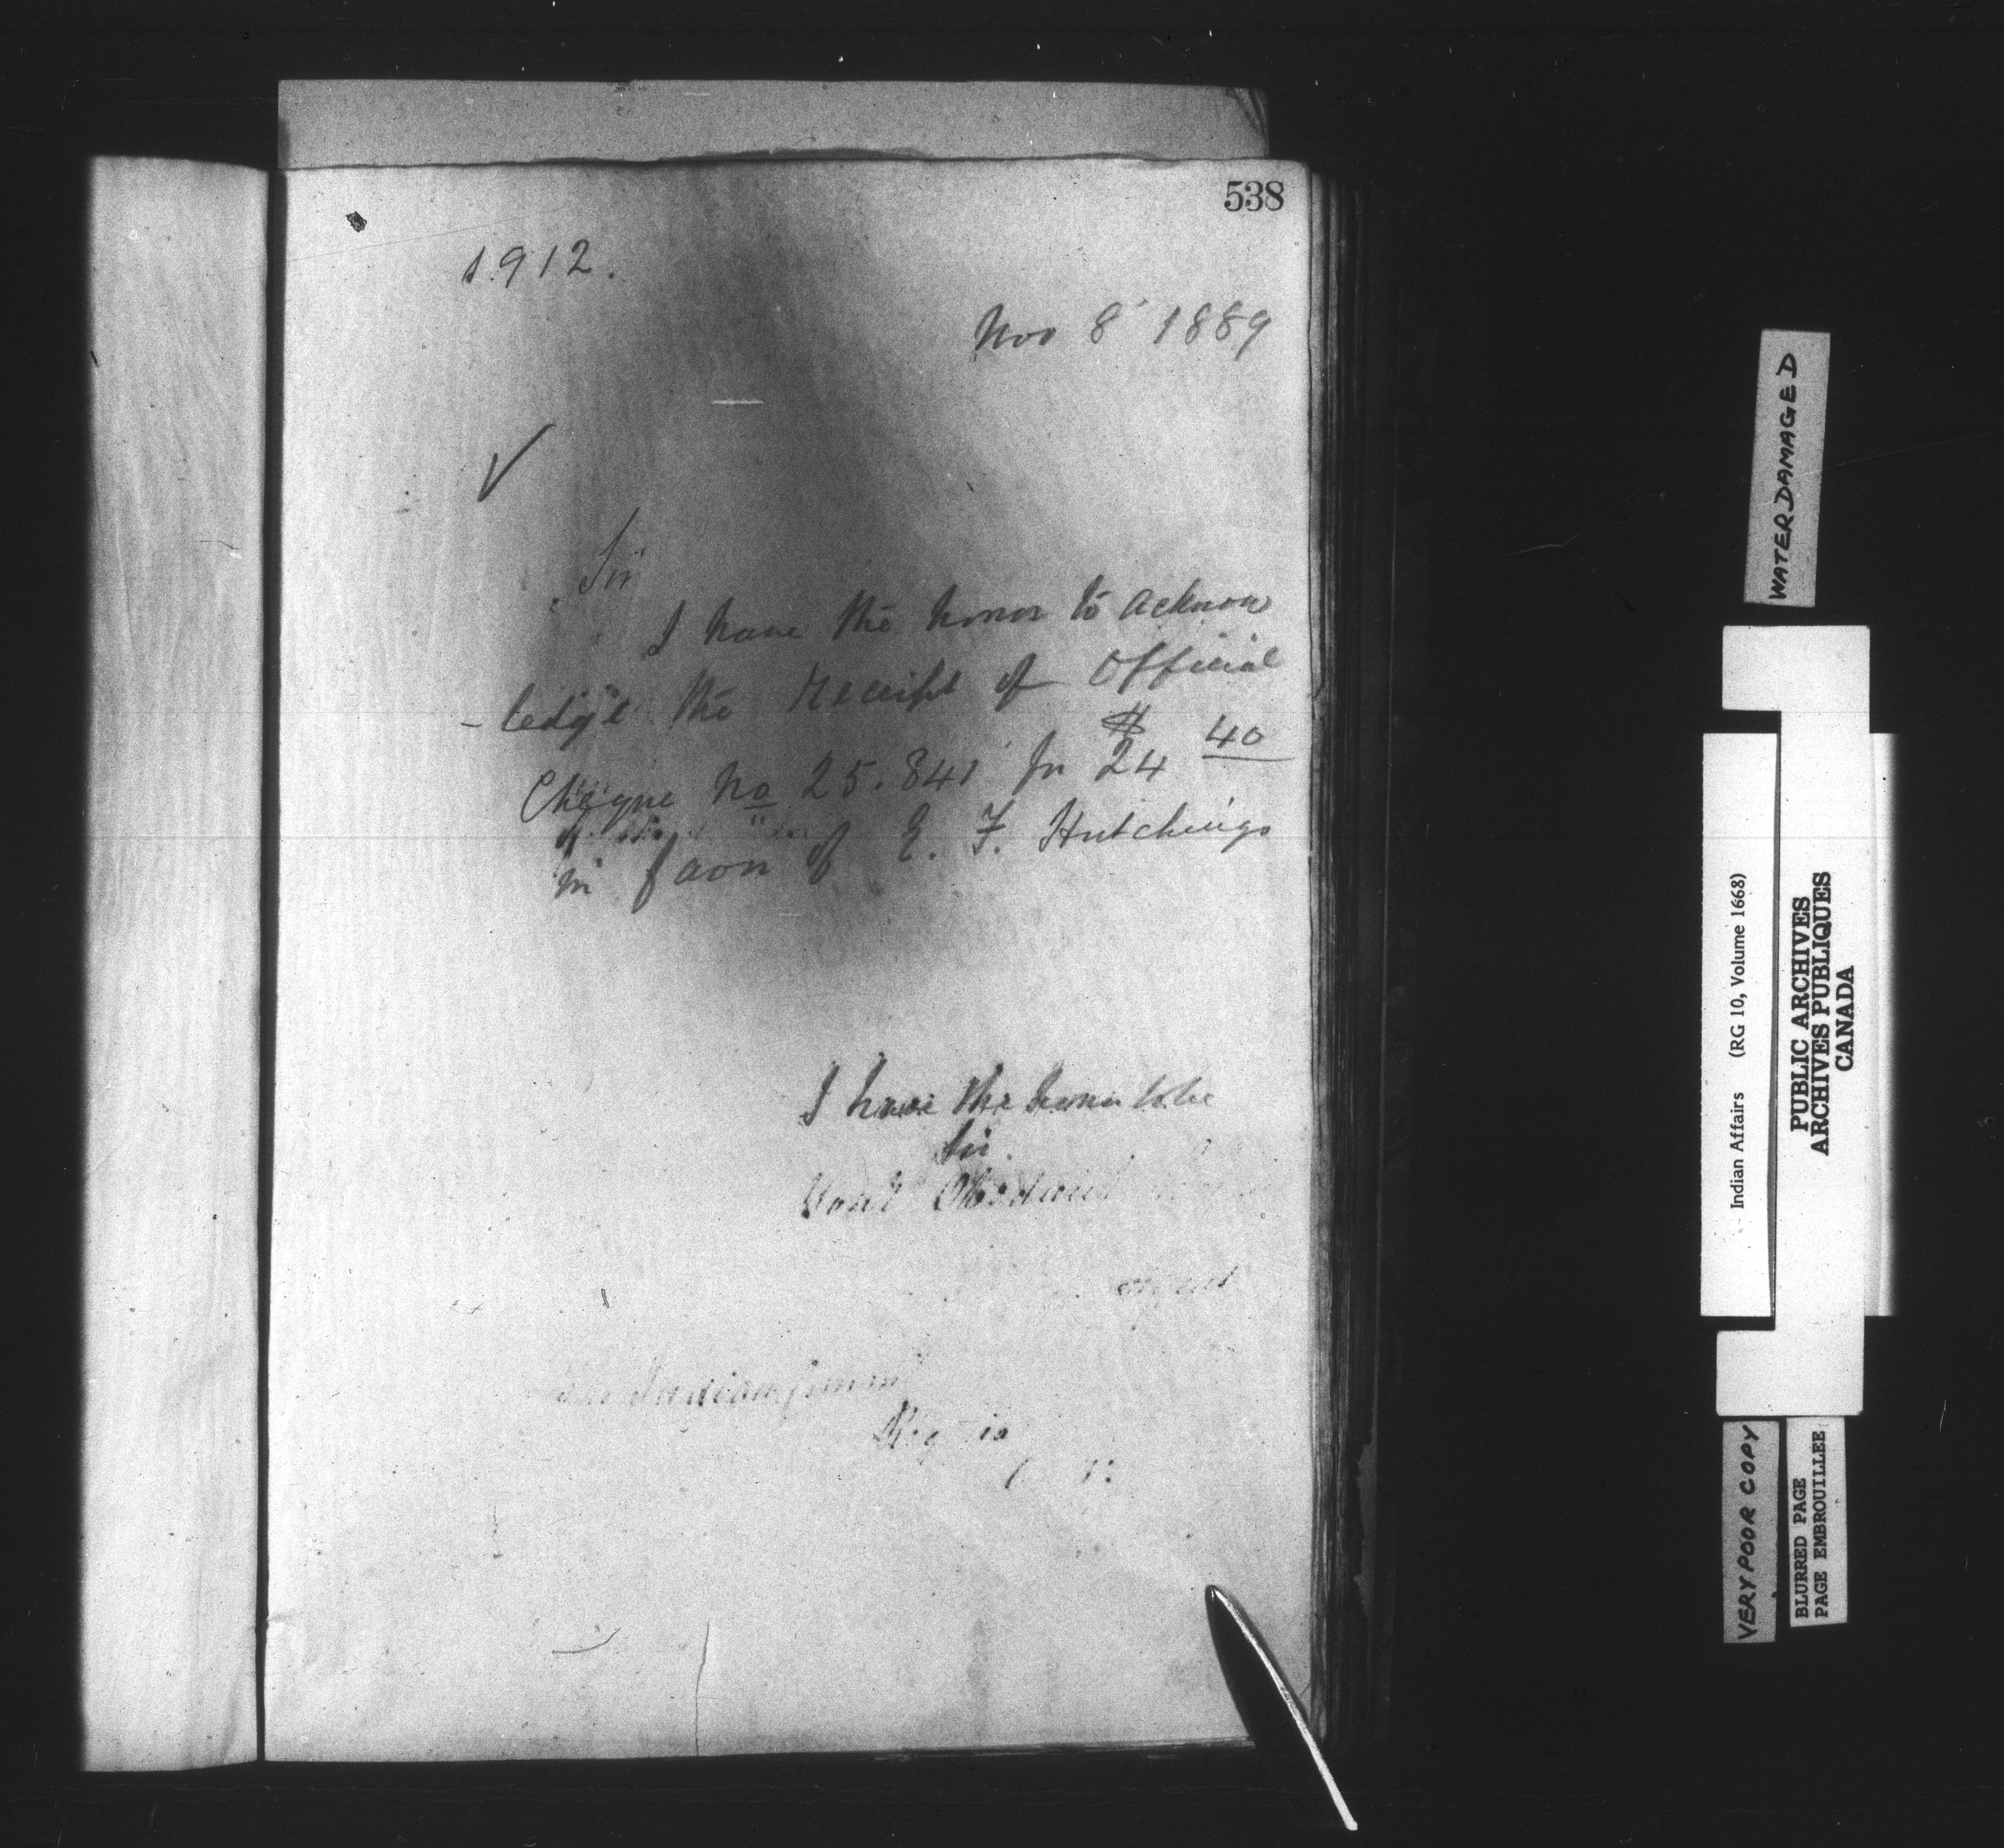 538
1912.
Nov 8 1889
Sir
I have the honor to acknow
- ledge the receipt of Official
Cheque No 25.841 for $24 40
in favor of E. F. Hutchings
I have the honor to be
Sir
Your Obedient
Agent
Indian
Regina
WATER DAMAGED
Indian Affairs (RG 10, Volume 1668)
PUBLIC ARCHIVES
ARCHIVES PUBLIQUES
CANADA
VERY POOR COPY
BLURRED PAGE
PAGE EMBROUILLEE